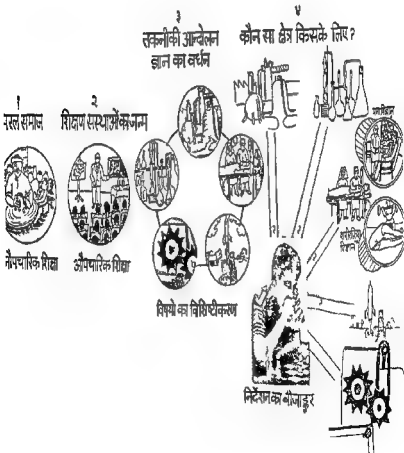 १
सरल समाज
नौपचारिक शिक्षा
२
शिक्षण संस्थाओं का जन्म
औपचारिक शिक्षा
३
तकनीकी आन्दोलन
ज्ञान का वर्धन
विषयो का विशिष्टीकरण
४
कौन सा क्षेत्र किसके लिए?
निर्देशन का बीजाङ्कुर